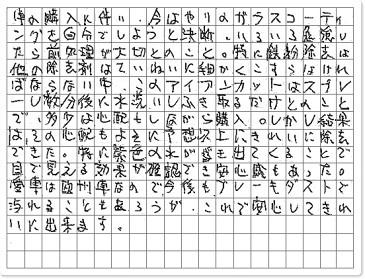 車の購入に伴い、今はやりのガラスコーティ
ングを自分でしようと決断。いろいろ危惧し
たら前処理が大切とのこと。特に鉄粉除去は
他の除去剤はていねいに細かくこすらなけれ
ばならない中、このアイアンカットはスプレ
ーし数分後に水洗いしふき取るだけとのこと
で、多少は心配もしながら購入。しかし結果
は、その心配もよそに予想以上にきれいに除去
できた。特に紫色の水が出てくることで
目で見える効果が確認でき安心感もあった。
愛車は欧州車なので今後も、ブレーキダストで
汚れることもあろうが、これで安心してきれ
いに出来ます。